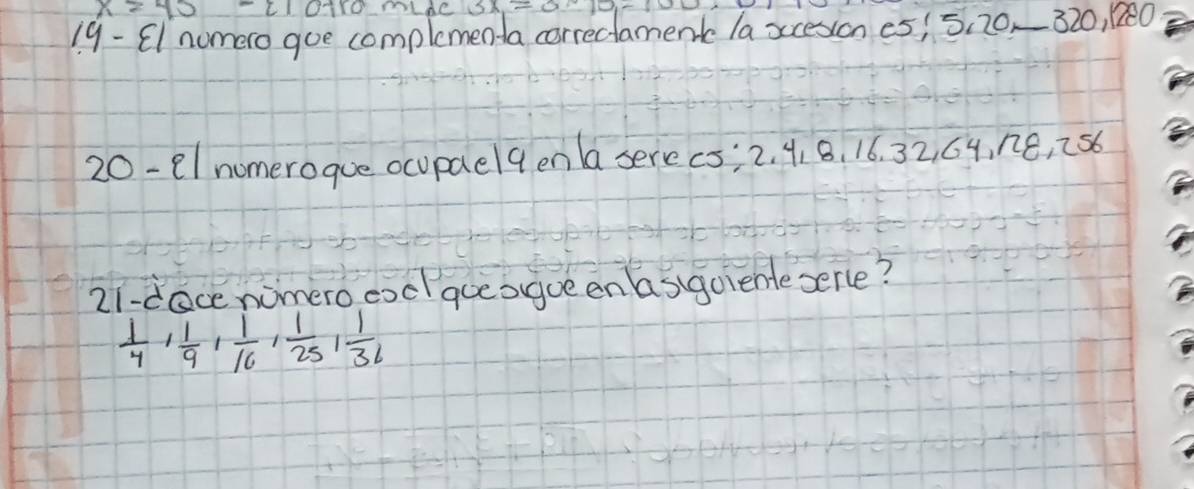 x = 45
19- El numero que complementa correctamente la sucesion es; 5,20,_ 320,1280
20 - El numero que ocupa el 9 en la serie es; 2,4,8,16,32,64,128,256
21-¿Que número es el que sigue en la siguiente serie?
1/4, 1/9, 1/16, 1/25, 1/36